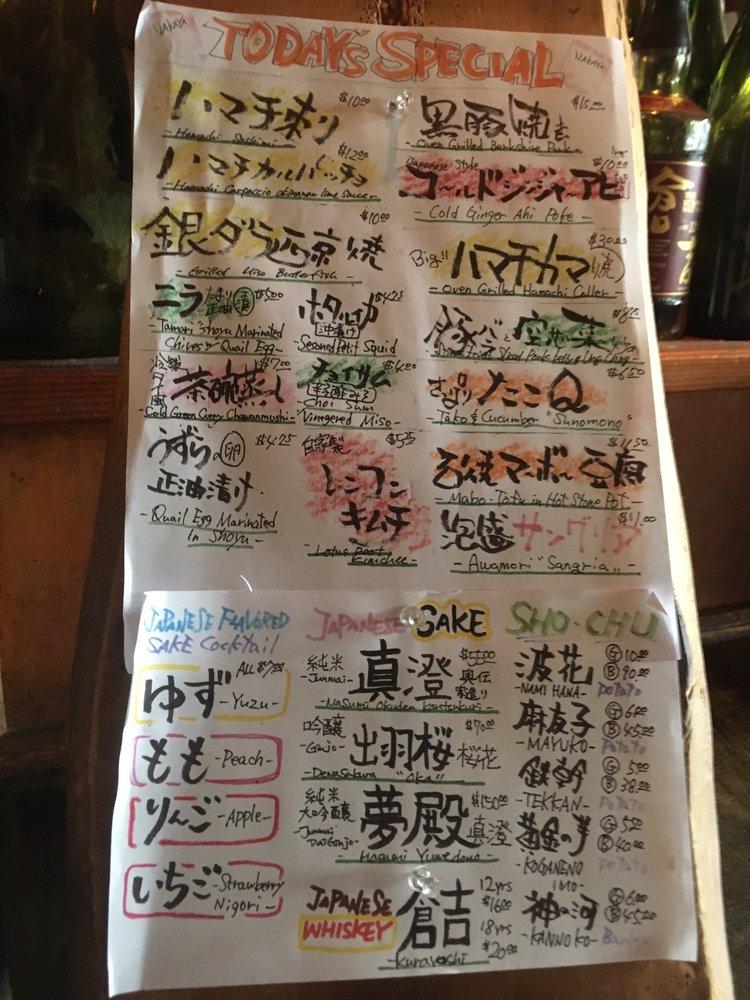 IZAKAYA
TODAY'S SPECIAL
IZAKAYA
ハマチ刺り $10.00
- Hamachi Sashimi -
$12.00
ハマチカルパッチョ
- Hamachi Carpaccio okinawan lime sauce -
$10.00
銀ダラ西京焼
- Grilled Miso Butterfish -
ニラ たまり正油漬 $5.00
- Tamari Shoyu Marinated
Chives & Quail Egg -
ホタルイカ $4.25
沖漬け
- Sesoned Petit Squid
冷製 $7.00
茶碗蒸し
- Cold Green Curry Chawanmushi -
チョイサム $4.00
辛子酢みそ
- Choi Sum
Vinegered Miso -
うずらの卵 $4.25
正油漬け
- Quail Egg Marinated
in Shoyu -
自家製 $5.25
レンコン
キムチ
- Lotus Root
Kimchee -
黒豚焼き $15.00
- Oven Grilled Berkshire Pork -
Japanese Style $10.00
コールドジンジャーアヒ
- Cold Ginger Ahi Poke -
$30.00
"Big" ハマチカマ 焼
Oven Grilled Hamachi Coller -
豚バラと空芯菜
$6.50
さっぱり たこQ
- Tako & Cucumber "Sunomono" -
$11.50
石焼マーボー豆腐
- Mabo-Tofu in Hot Stone Pot -
$11.00
泡盛サングリア
- Awamori "Sangria" -
JAPANESE FLAVORED
SAKE COCKTAIL
ALL $7.00
ゆず - Yuzu -
もも - Peach -
りんご - Apple -
いちご - Strawberry
Nigori -
JAPANESE SAKE
純米 - Junmai - 真澄 $55.00 奥伝寒造り
- Masumi Okuden Kantsukuri -
吟醸 - Ginjo - 出羽桜 $70.00 桜花
- Dewasakura "Oka" -
純米大吟醸 - Junmai DaiGinjo - 夢殿 $150.00 真澄
- Masumi Yumedono -
JAPANESE
WHISKEY
倉吉
- Kurayoshi -
12yrs
$16.00
18yrs
$20.00
SHO-CHU
波花 G 10.00
B 90.00
- NAMI HANA - POTATO
麻友子 G 6.00
B 45.00
- MAYUKO - POTATO
鉄幹 G 5.00
B 38.00
- TEKKAN - POTATO
黄金の芋 G 5.50
B 40.00
- KOGANENO IMO - POTATO
神の河 G 6.00
B 45.00
- KANNOKO - Barley